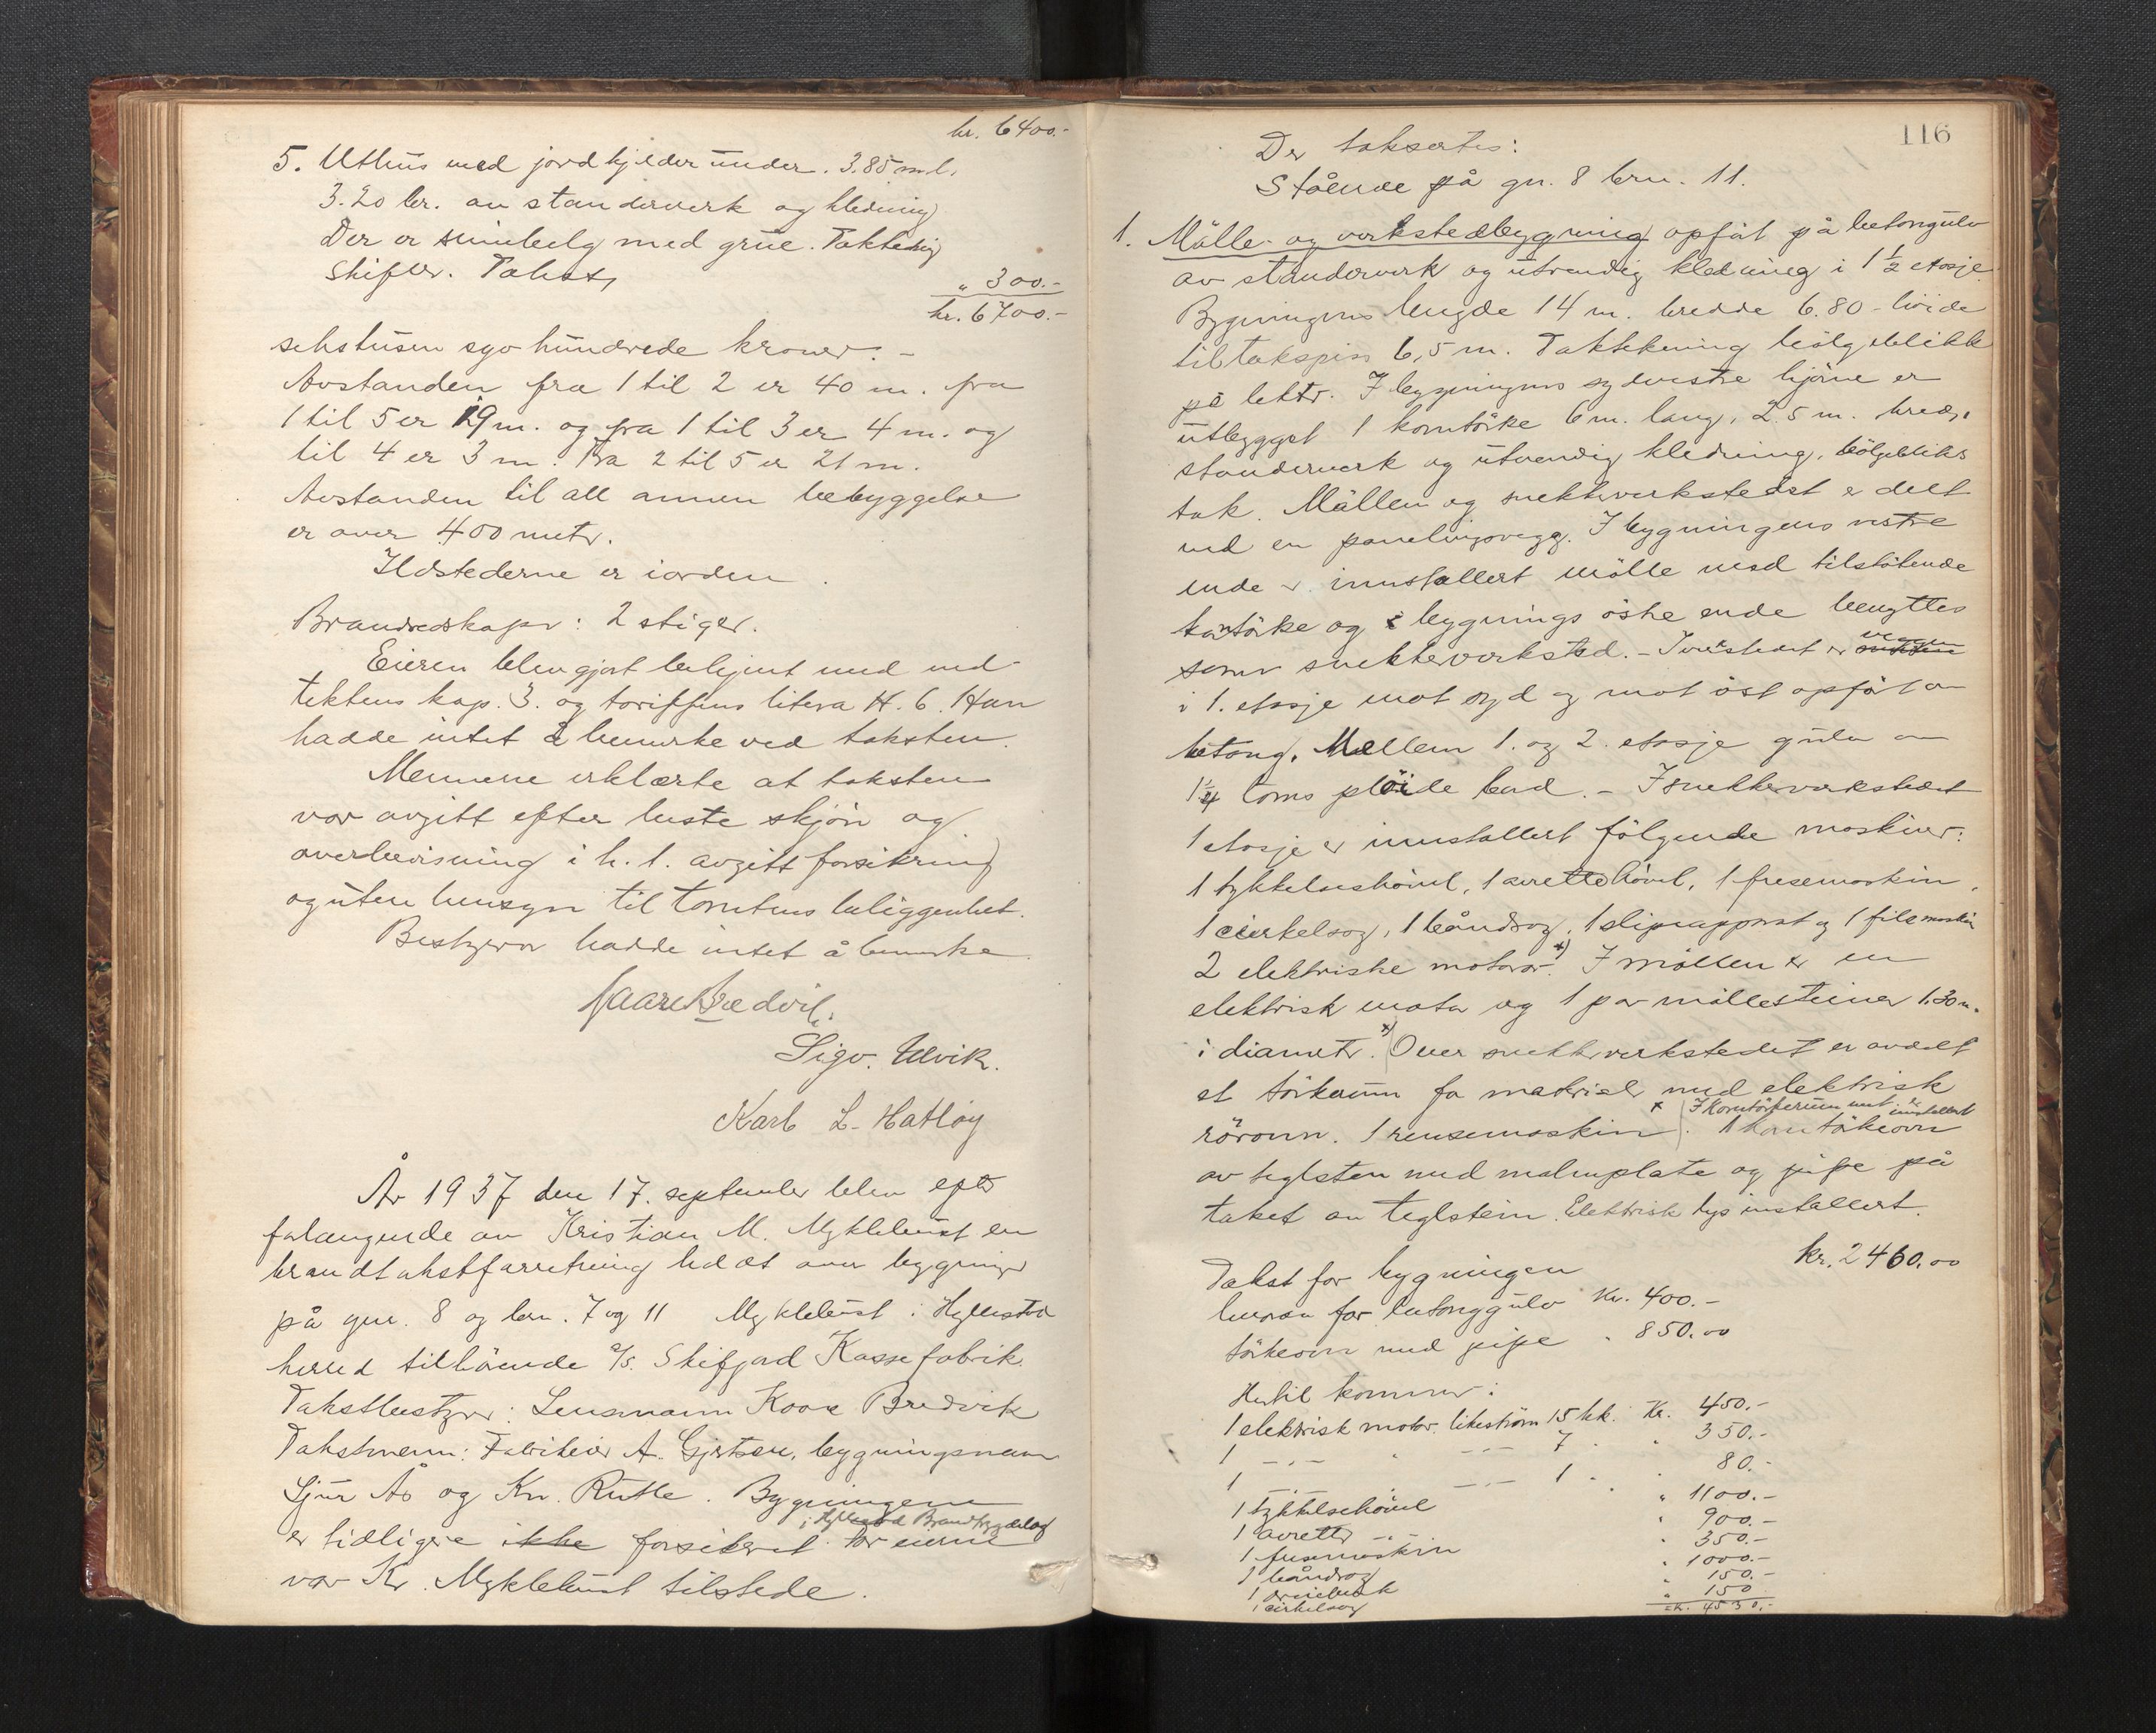 kr. 6400.-
5. Uthus med jordkjelder under. 3.85 m l.
3.20 br. av standerverk og kledning
Der er med grue. Taktekning
skifer. Takst,
" 300.-
kr. 6700.-
sekstusen syvhundrede kroner. -
Avstanden fra 1 til 2 er 40 m. fra
1 til 5 er 19 m. og fra 1 til 3 er 4 m. og
til 4 er 3 m. Fra 2 til 5 er 21 m.
Avstanden til all annen bebyggelse
er over 400 meter.
Ildstederne er i orden.
Brandredskaper: 2 stiger.
Eieren blev gjort bekjent med ved-
tektens kap. 3. og tariffens litera H. 6. Han
hadde intet å bemerke ved taksten.
Mennene erklærte at taksten
var avgitt efter beste skjön og
overbevisning i h. t. avgitt forsikring
og uten hensyn til tomtens beliggenhet.
Bestyrer hadde intet å bemerke.
Kaare Bredvik.
Sigv. Ulvik.
Karl L. Hatlöy
År 1937 den 17. september blev efter
forlangende av Kristian M. Myklebust en
brandtakstforretning holdt over bygninger
på gnr. 8 og brn. 7 og 11 Myklebust i Hyllestad
herred tilhörende A/S. Skifjord Kassefabrik.
Takstbestyrer: Lensmann Kaare Bredvik
Takstmenn: Fabrikeier A. Gjertsen, bygningsmenn
Sjur Ås og Kn. Rutle. Bygningene
i Hyllestad Brandtrygdelag
er tidligere ikke forsikret for eierne
var Kr. Myklebust tilstede.
116
Der taksertes:
Stående på gn. 8 brn. 11.
1. Mölle- og verkstedbygning opfört på betongulv
av standerverk og utvendig kledning i 1 1/2 etasje.
Bygningens lengde 14 m. bredde 6.80 - höide
til takspiss 6,5 m. Taktekning bölgeblikk
på lekter. I bygningens sydvestre hjörne er
utbygget 1 korntörke 6 m. lang, 2.5 m. bred,
standerverk og utvendig kledning, bölgebliks
tak. Möllen og snekkerverkstedet er delt
ved en panelingsvegg. I bygningens vestre
ende er innstallert mölle med tilstötende
korntörke og i bygnings östre ende benyttes
veggen
som snekkerverksted. - I verkstedet er
i 1. etasje mot syd og mot öst opfört av
betong. Mellem 1. og 2. etasje gulv av
1 1/4 toms plöide bord. - I snekkerverkstedet
1 etasje er innstallert fölgende maskiner:
1 tykkelseshövel, 1 avrettehövel, 1 fresemaskin,
1 cirkelsag, 1 båndsag, 1 slipeapparat og 1 filemaskin
2 elektriske motorer. x) I möllen er en
elektrisk motor og 1 par möllesteiner 1.30 m.
i diameter. x) Over snekkerverkstedet er avdelt
et törkerum for materialer med elektrisk
x I korntörkerum ent. er innstallert
rörovn. 1 rensemaskin. 1 korntörkeovn
av teglsten med malmplate og pipe på
taket av teglstein. Elektrisk lys installert.
Takst for bygningen
kr. 2460.00
herav for betonggulv Kr. 400.-
törkeovn med pipe " 850.00
Hertil kommer:
1 elektrisk motor. likeström 15 hk. Kr. 450.-
1 -"- " -"- 7 " " 350.-
1 -"- " -"- 1 " " 80.-
1 tykkelsehövel " 1100.-
1 avretter -"- " 900.-
1 fresemaskin " 350.-
1 båndsag " 1000.-
1 dreiebenk " 150.-
1 cirkelsag " 150
Kr. 4530.-